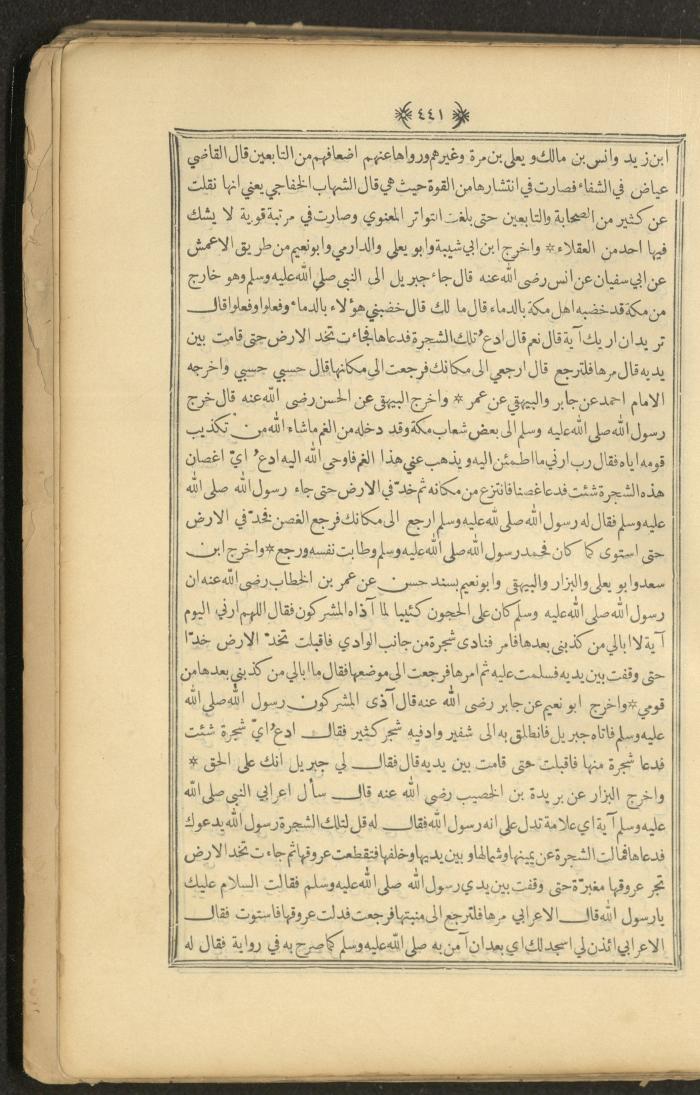 ٤٤١
ابن زيد وانس بن مالك ويعلى بن مرة وغيرهم ورواها عنهم اضعافهم من التابعين قال القاضي
عياض في الشفاء فصارت في انتشارها من القوة حيث هي قال الشهاب الخفاجي يعني انها نقلت
عن كثير من الصحابة والتابعين حتى بلغت التواتر المعنوي وصارت في مرتبة قوية لا يشك
فيها احد من العقلاء * واخرج ابن ابي شيبة وابو يعلى والدارمي وابو نعيم من طريق الاعمش
عن ابي سفيان عن انس رضى الله عنه قال جاء جبريل الى النبي صلى الله عليه وسلم وهو خارج
من مكة قد خضبه اهل مكة بالدماء قال ما لك قال خضبني هؤلاء بالدماء وفعلوا وفعلوا قال
تريد ان اريك آية قال نعم قال ادع تلك الشجرة فدعاها فجاءت تخد الارض حتى قامت بين
يديه قال مرها فلترجع قال ارجعي الى مكانك فرجعت الى مكانها قال حسبي حسبي واخرجه
الامام احمد عن جابر والبيهقي عن عمر * واخرج البيهقي عن الحسن رضى الله عنه قال خرج
رسول الله صلى الله عليه وسلم الى بعض شعاب مكة وقد دخله من الغم ما شاء الله من تكذيب
قومه اياه فقال رب ارني ما اطمئن اليه ويذهب عني هذا الغم فاوحى الله اليه ادع ايّ اغصان
هذه الشجرة شئت فدعا غصنا فانتزع من مكانه ثم خدّ في الارض حتى جاء رسول الله صلى الله
عليه وسلم فقال له رسول الله صلى الله عليه وسلم ارجع الى مكانك فرجع الغصن فخدّ في الارض
حتى استوى كما كان فحمد رسول الله صلى الله عليه وسلم وطابت نفسه ورجع * واخرج ابن
سعد وابو يعلى والبزار والبيهقي وابو نعيم بسند حسن عن عمر بن الخطاب رضى الله عنه ان
رسول الله صلى الله عليه وسلم كان على الحجون كئيبا لما آذاه المشركون فقال اللهم ارني اليوم
آية لا ابالي من كذبني بعدها فامر فنادى شجرة من جانب الوادي فاقبلت تخدّ الارض خدّا
حتى وقفت بين يديه فسلمت عليه ثم امرها فرجعت الى موضعها فقال ما ابالي من كذبني بعدها من
قومي * واخرج ابو نعيم عن جابر رضى الله عنه قال آذى المشركون رسول الله صلى الله
عليه وسلم فاتاه جبريل فانطلق به الى شفير واد فيه شجر كثير فقال ادع ايّ شجرة شئت
فدعا شجرة منها فاقبلت حتى قامت بين يديه قال فقال لي جبريل انك على الحق *
واخرج البزار عن بريدة بن الخصيب رضى الله عنه قال سأل اعرابي النبي صلى الله
عليه وسلم آية اي علامة تدل على انه رسول الله فقال له قل لتلك الشجرة رسول الله يدعوك
فدعاها فمالت الشجرة عن يمينها وشمالها وبين يديها وخلفها فتقطعت عروقها ثم جاءت تخد الارض
تجر عروقها مغبرّة حتى وقفت بين يدي رسول الله صلى الله عليه وسلم فقالت السلام عليك
يا رسول الله قال الاعرابي مرها فلترجع الى منبتها فرجعت فدلت عروقها فاستوت فقال
الاعرابي ائذن لي اسجد لك اي بعد ان آمن به صلى الله عليه وسلم كما صرح به في رواية فقال له